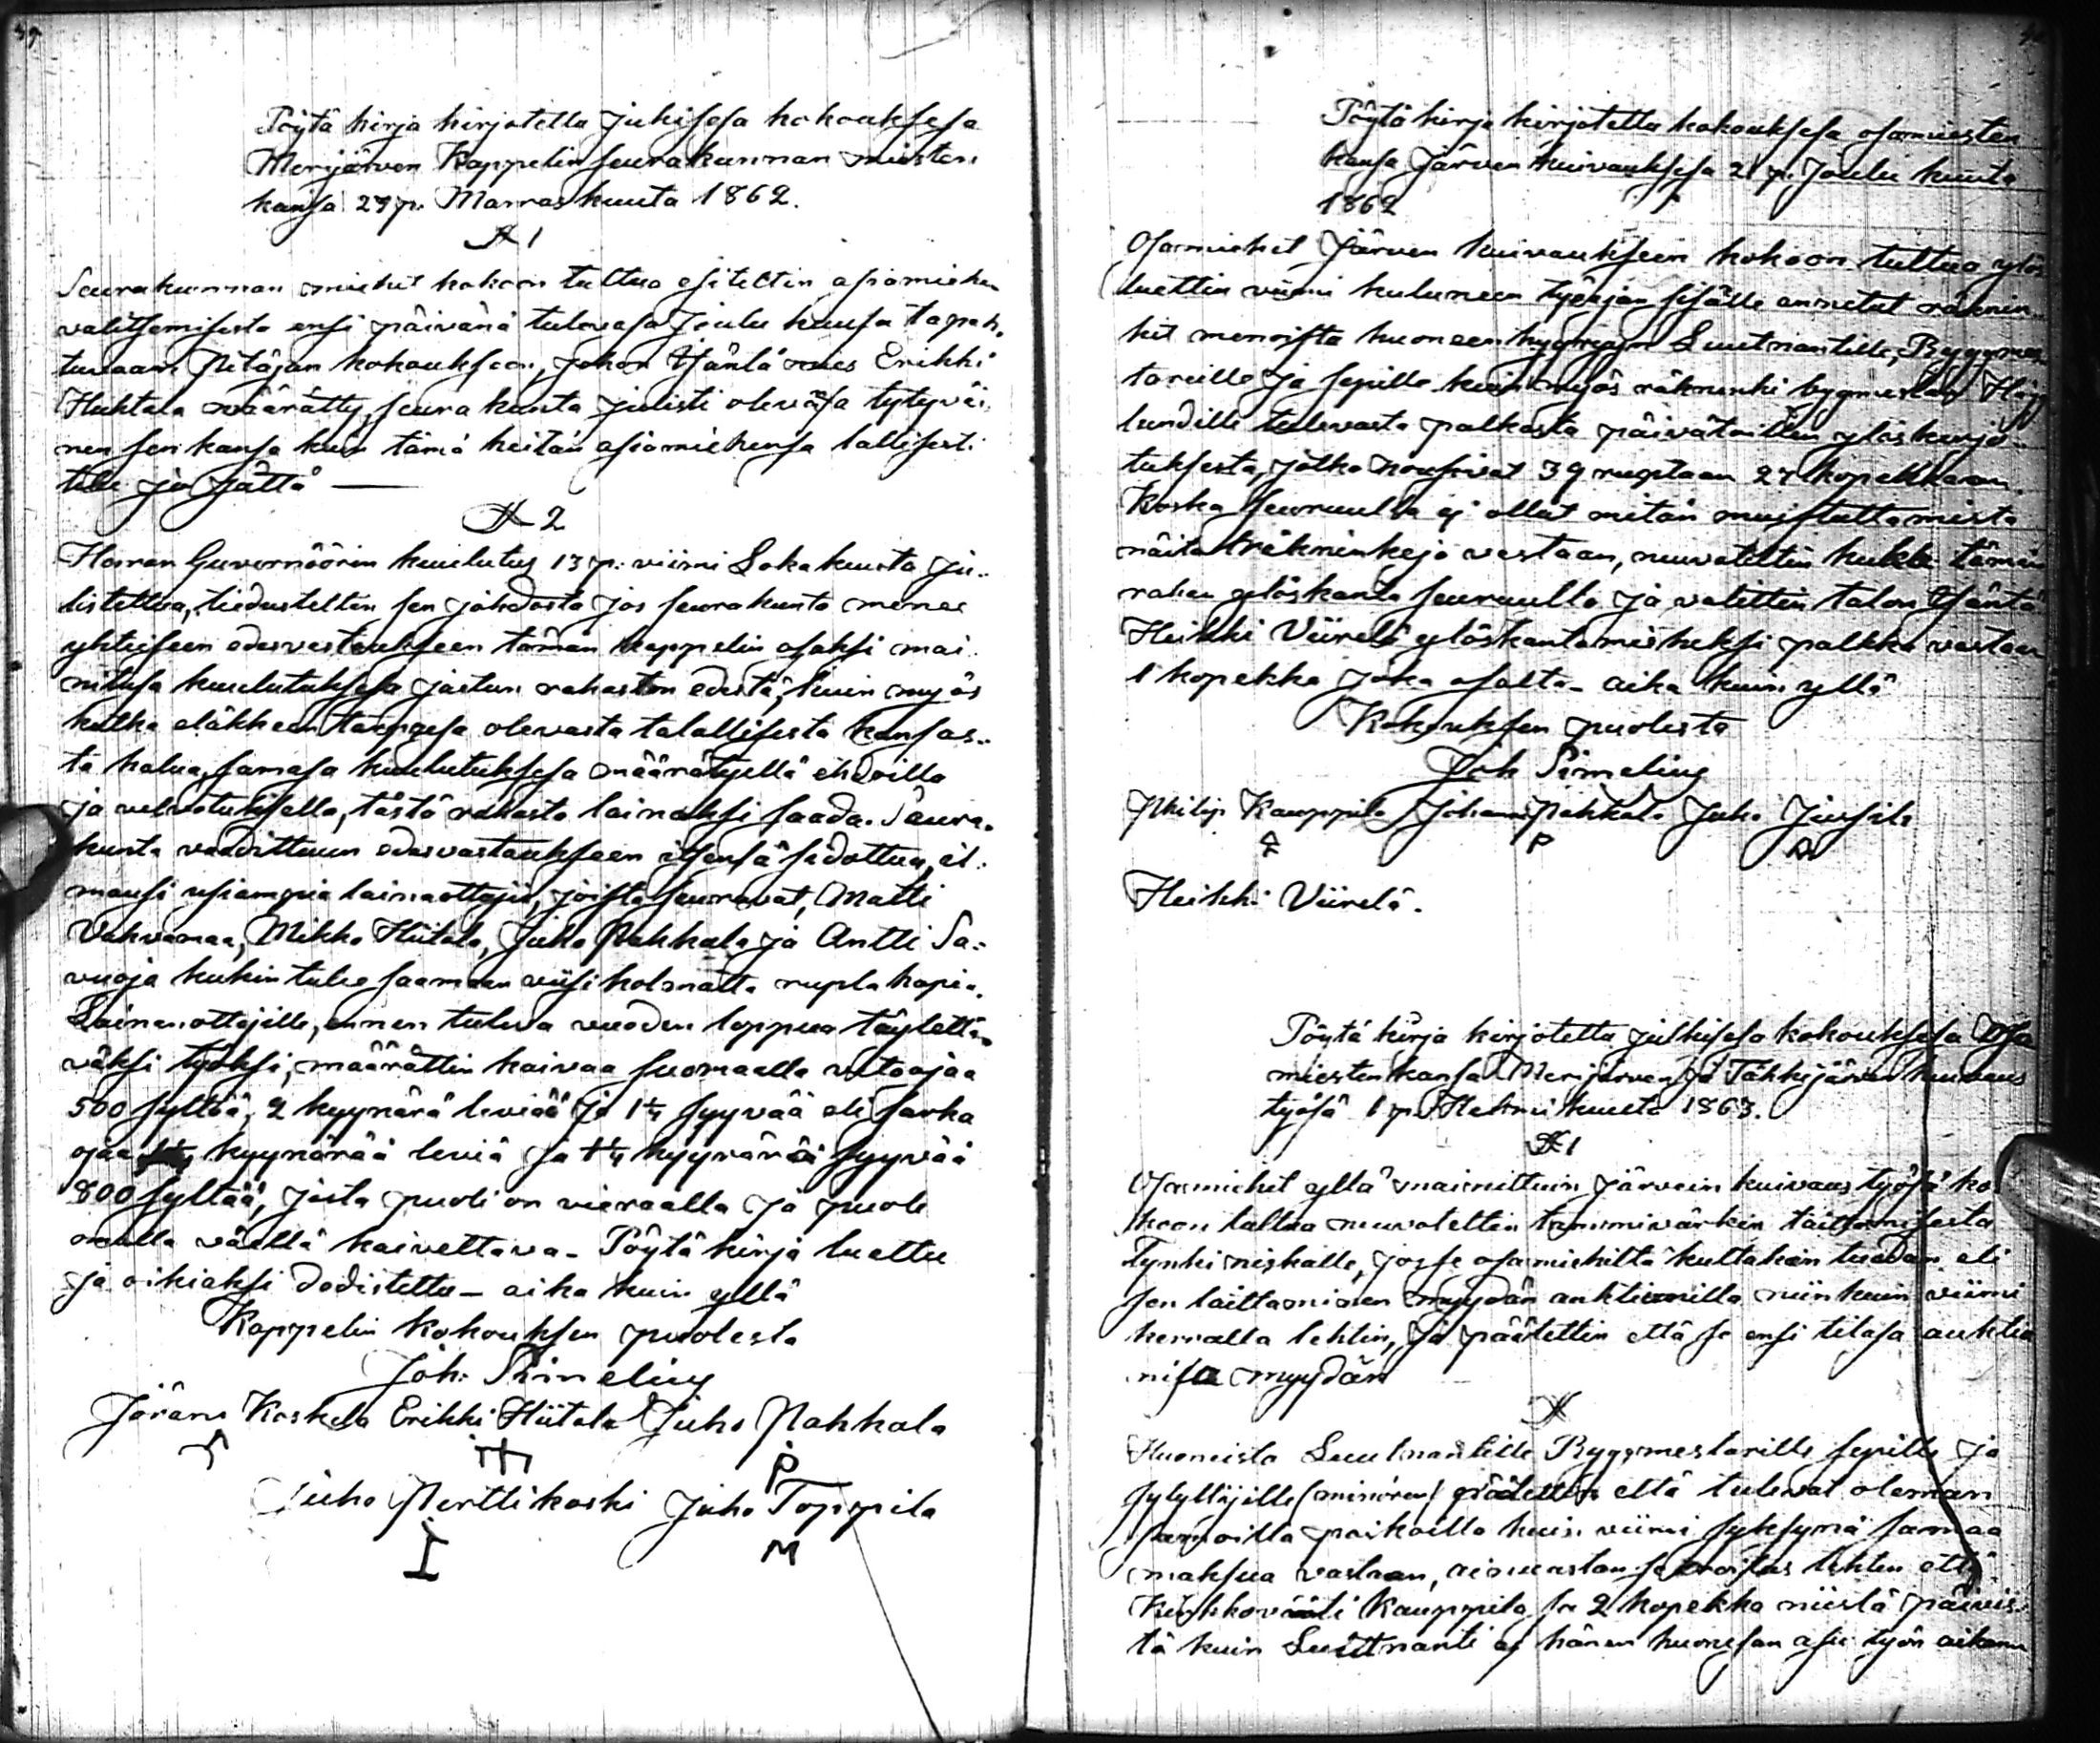 39
Pöytä kirja kirjotettu julkisesa kokouksesa
Merijärven Kappelin seurakunnan miesten
kansa 29 p. Marras kuuta 1862.
§ 1
Seurakunnan miehet kokoon tultua esiteltin asiamiehen
valitsemisesta ensi päivänä tulevasa Joulu kuusa tapah-
tuvaan Pitäjän kokoukseen, johon Isäntä mies Erikki
Huhtala määrätty, seura kunta julisti olevansa tytyväi-
nen sen kansa kuin tämä heitän asiamiehensä lallisesti
tule ja jättä —
§ 2
Herran Guvernöörin kuulutus 13 p. viimi Lokakuuta ju-
listettua, tiedusteltin sen johdosta jos seurakunta menee
yhteiseen edesvastaukseen tämän kappelin osaksi mai-
nitusa kuulutuksesa jaetun rahaston edestä, kuin myös
kutka eläkkeen tarpeesa olevasta talallisesta kansas-
ta halua, samasa kuulutuksesa määrätyellä ehdoilla
ja velvotuksella, tästä rahasta lainaksi saada. Seura-
kunta vaadittuun edesvastaukseen itsensä sidottua, il-
mausi usiampia lainaottajia, joista seuravat, Matti
Vahvamaa, Mikko Hiitola, Juho Pahkala ja Antti Sa-
vuoja kukin tulee saamaan viisi kolmatta rupla hopia.
Lainanottajille, ennen tuleva vuoden loppua täytettä-
väksi työksi, määrättin kaivaa suomaalla vetoojaa
500 syltää, 2 kyynärä leviää ja 1¼ syyvää eli sarka
ojaa kyynärää leviä ja 1¼ kyynärää syyvää
800 syltää, josta puoli on vieraalla ja puoli
omalla väellä kaivettava - Pöytä kirja luettu
ja oikiaksi todistettu - aika kuin yllä
Kappelin kokouksen puolesta
Joh: Simelius
Jöran Koskela Erikki Hiitola Juho Pahkala
P
Juho Perttikoski Juho Toppila
I M
Pöytä kirja kirjotettu kokouksesa osamiesten
kansa Järven kuivauksesa 21 p. Joulu kuuta
1862
Osamiehet Järven kuivaukseen kokoon tultua ylös
luettin viimi kuluneen työajan sisälle annetut räknin-
kit menoista huoneen hyyryjen Luutnantille, Byggmes
tarille ja sepille kuin myös räkninki bygmestari Hög
lundille tulevasta palkasta päivätaillen ylöskirjo-
tuksesta, jotka nousivat 39 ruplaan 27 kopekkaan
Koska seuruulla ej ollut mitän muistuttamista
näitä räkninkejä vastaan, neuvoteltin kukka tämän
rahan ylöskanta seuruulta ja valittin talon Isäntä
Heikki Viirelä ylöskantamisheksi palkka vastaan
1 kopekka joka osalta - aika kuin yllä
Kokouksen puolesta
Joh Simelius
Philip Kauppila Johan Pahkala Juho Juusila
P
Heikki Viirelä.
Pöytä kirja kirjotettu julkisesa kokouksesa Osa
miesten kansa Merijärven ja Tähkijärven kuivaus
työsä 1 p. Helmi kuuta 1863.
§ 1
Osamiehet yllä mainittuin järvein kuivaus työsä ko
koon tultua neuvoteltin tammivärkin täittämisestä
Tynkiniskalle, josse osamiehiltä kuttakin tuodan eli
sen laittaminen myydän auktionilla niinkuin viimi
kerralla tehtin, ja päätettin että se ensi tilasa auktio
nisa myydän
§
Huoneista Luutnantille Byggmestarille sepille ja
sytyttäjille (minören) päätettin että tulevat oleman
samoilla paikoilla kuin viimi syksynä samaa
maksua vastaan, ainuastan se muutos tehtin että
Kirkkoväärti Kauppila sa 2 kopekka niistä päivis-
tä kuin Luutnanti ej hänen huonesan asu työn aikana